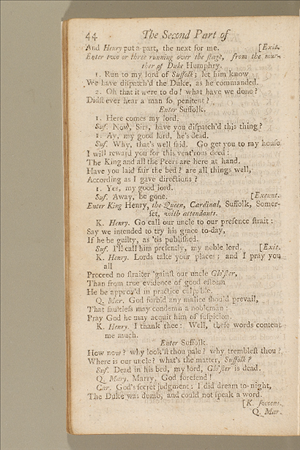 44 The Second Part of
And Henry put a-part, the next for me. [Exit.
Enter two or three running over the stage, from the mur-
ther of Duke Humphry.
1. Run to my lord of Suffolk; let him know
We have dispatch'd the Duke, as he commanded.
2. Oh that it were to do! what have we done?
Didst ever hear a man so penitent?
Enter Suffolk.
1. Here comes my lord.
Suf. Now, Sirs, have you dispatch'd this thing?
1. Ay, my good lord, he's dead.
Suf. Why, that's well said. Go get you to my house
I will reward you for this vent'rous deed:
The King and all the Peers are here at hand,
Have you laid fair the bed? are all things well,
According as I gave directions?
1. Yes, my good lord.
Suf. Away, be gone. [Exeunt.
Enter King Henry, the Queen, Cardinal, Suffolk, Somer-
set, with attendants.
K. Henry. Go call our uncle to our presence strait:
Say we intended to try his grace to-day,
If he be guilty, as 'tis published.
Suf. I'll call him presently, my noble lord. [Exit.
K. Henry. Lords take your places: and I pray you
all
Proceed no straiter 'gainst our uncle Glo'ster,
Than from true evidence of good esteem
He be approv'd in practice culpable.
Q. Mar. God forbid any malice should prevail,
That faultless may condemn a nobleman:
Pray God he may acquit him of suspicion.
K. Henry. I thank thee: Well, these words content
me much.
Enter Suffolk.
How now? why look'st thou pale? why tremblest thou?
Where is our uncle? what's the matter, Suffolk?
Suf. Dead in his bed, my lord, Glo'ster is dead.
Q. Mary. Marry, God forefend!
Car. God's secret judgment: I did dream to-night,
The Duke was dumb, and could not speak a word.
[K. swoons.
Q. Mar.